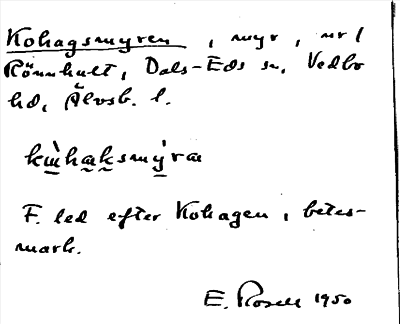 Kohagsmyren, myr, nr 1
Rönnhult, Dals-Eds sn, Vedbo
hd, Älvsb. l.
kɯ̀haksmýra
F. led efter Kohagen, betes-
mark.
E. Rosell 1950